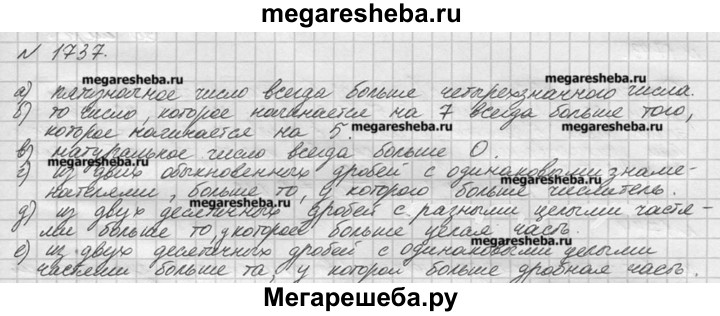 megaresheba.ru
N 1737.
megaresheba.ru megaresheba.ru
а) пятизначное число всегда больше четырехзначного числа.
б) то число, которое начинается на 7 всегда больше того,
которое начинается на 5. megaresheba.ru megaresheba.ru
в) натуральное число всегда больше 0.
г) из двух обыкновенных дробей с одинаковыми знаме-
нателями, больше то, у которого больше числитель.
megaresheba.ru megaresheba.ru
д) из двух десятичных дробей с разными целыми частя-
ми больше то, у которое больше целая часть.
megaresheba.ru megaresheba.ru
е) из двух десятичных дробей с одинаковыми целыми
частями больше та, у которой больше дробная часть.
Мегарешеба.ру